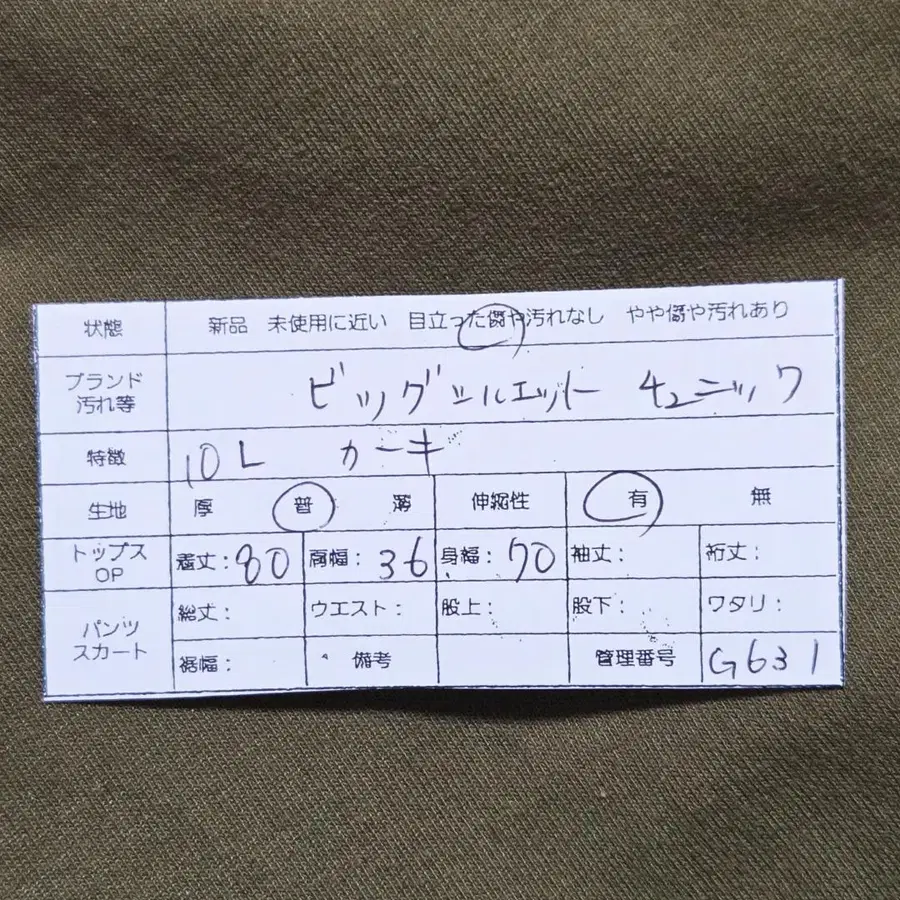 状態 新品 未使用に近い 目立った傷や汚れなし やや傷や汚れあり
ブランド 汚れ等 ビッグシルエット チュニック
特徴 10L カーキ
生地 厚 普 薄 伸縮性 有 無
トップス OP 着丈:80 肩幅:36 身幅:70 袖丈: 裄丈:
パンツ スカート 総丈: ウエスト: 股上: 股下: ワタリ:
裾幅: 備考 管理番号 G631